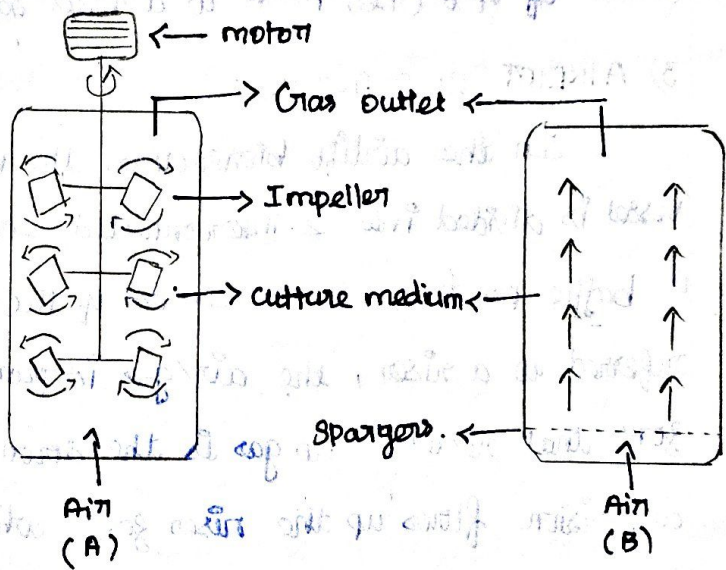 motor
Gas outlet
Impeller
Culture medium
Spargers.
Air
(A)
Air
(B)